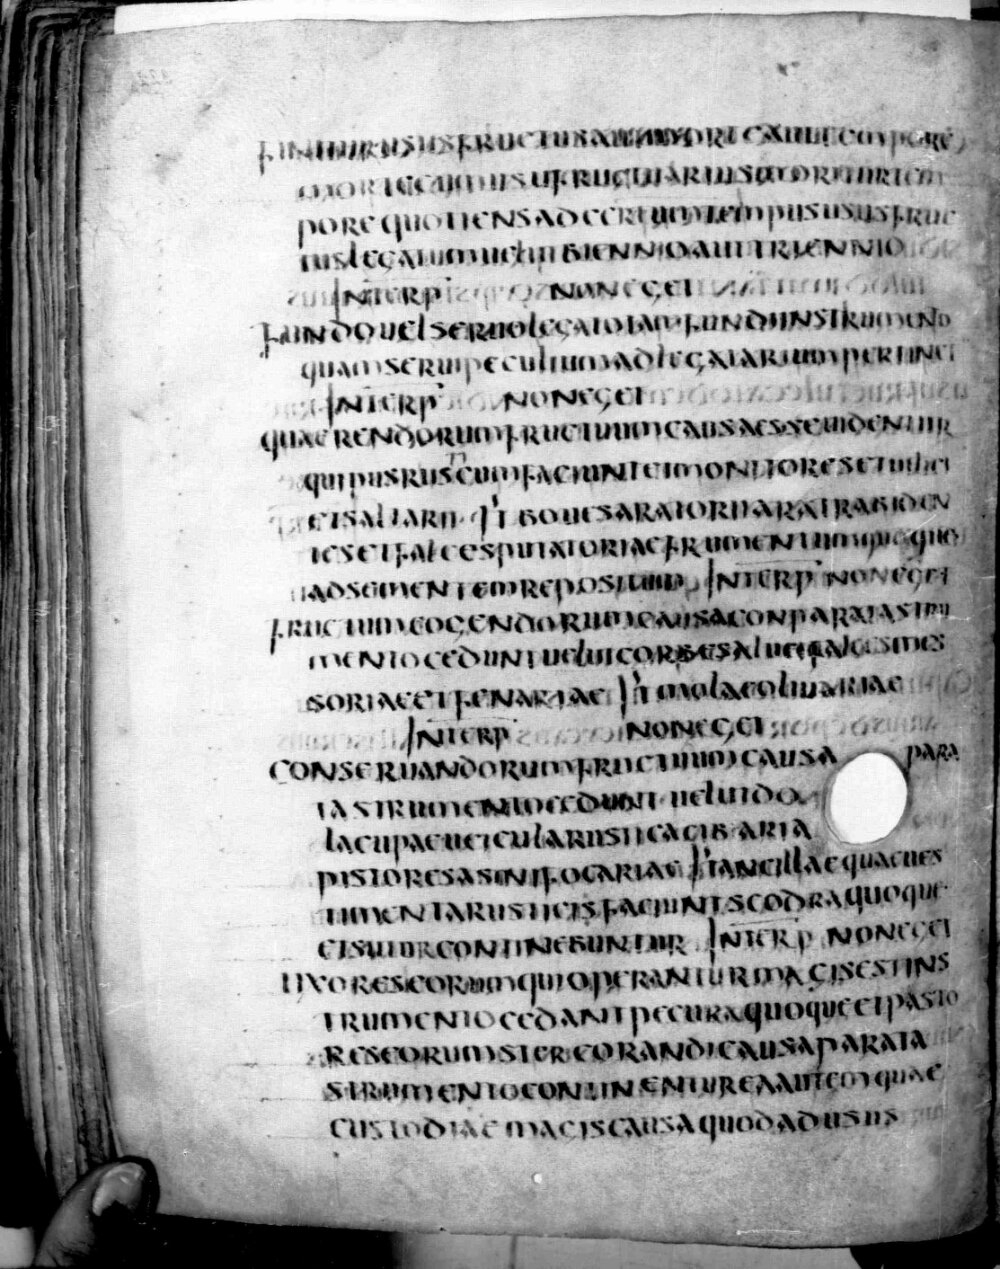 FINITUR USUSFRUCTUS AUT MORTE AUT TEMPORE
MORTE CUM USUFRUCTUARIUS MORITUR TEM
PORE QUOTIENS AD CERTUM TEMPUS USUSFRUC
TUS LEGATUR VELUT BIENNIO AUT TRIENNIO
INTERP NON EGET
FUNDO VEL SERVO LEGATO TAM FUNDI INSTRUMENTO
QUAM SERVI PECULIUM AD LEGATARIUM PERTINET
INTERP NON EGET
QUAERENDORUM FRUCTUUM CAUSA ESSE VIDENTUR
QUI PUS RUSCUM FACIUNT ET MONITORES ET VILICI
ET SALTARII IT BOVES ARATORII ARATRA BIDEN
TES ET FALCES PUTATORIAE FRUMENTUMQUE QUO
AD SEMENTEM REPOSITUM INTERP NON EGET
FRUCTUUM COGENDORUM CAUSA CONPARATA STRU
MENTO CEDUNT VELUT CORBES ALVEI FALCES MES
SORIAE ET FENARIAE IT MOLAE OLIVARIAE
INTERP NON EGET
CONSERVANDORUM FRUCTUUM CAUSA PARA
TA STRUMENTO CEDUNT VELUT DO
LA CUPAE VEICULA RUSTICA CIBARIA
PISTORES ASINI FOCARIAE IT ANCILLAE QUAE VES
TIMENTA RUSTICIS FACIUNT SCODRA QUOQUE
ET SUTOR CONTINEBUNTUR INTERP NON EGET
UXORES EORUM QUI OPERANTUR MAGIS EST INS
TRUMENTO CEDANT PECORA QUOQUE ET PASTO
RES EORUM STERCORANDI CAUSA PARATA
STRUMENTO CONTINENTUR EA AUTEM QUAE
CUSTODIAE MAGIS CAUSA QUOD AD USUS